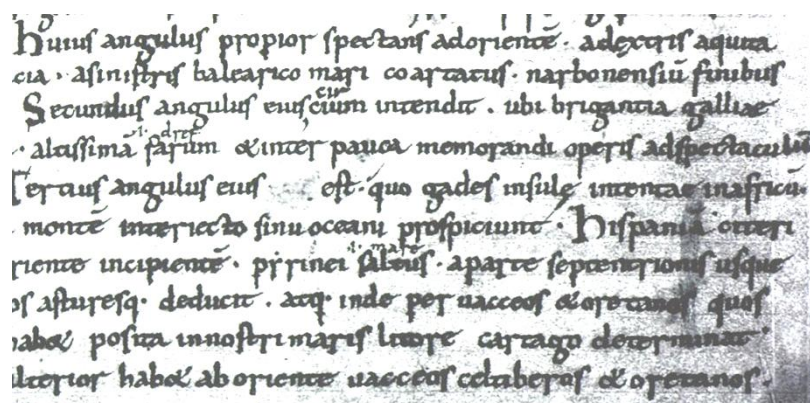 huius angulus propior spectans adorientē· adextris aquita
cia· asinistris balearico mari coartatus· narbonensiū finibus
Secundus angulus eius circium intendit· ubi brigantia galliae
· altissimā farum &inter pauca memorandi operis adspectaculū
Tertius angulus eius est· quo gades insulę intentae inafricū
montē interiecto sinu oceani prospiciunt· hispaniā citeri
riente incipientē· pyrinei saltus· aparte septentrionis usque
os asturesq· deducit· atq· inde per uacceos &oretanos quos
hab& posita innostri maris litore cartago determinat
ulterior hab& ab oriente uacceos celtiberos & oretanos·